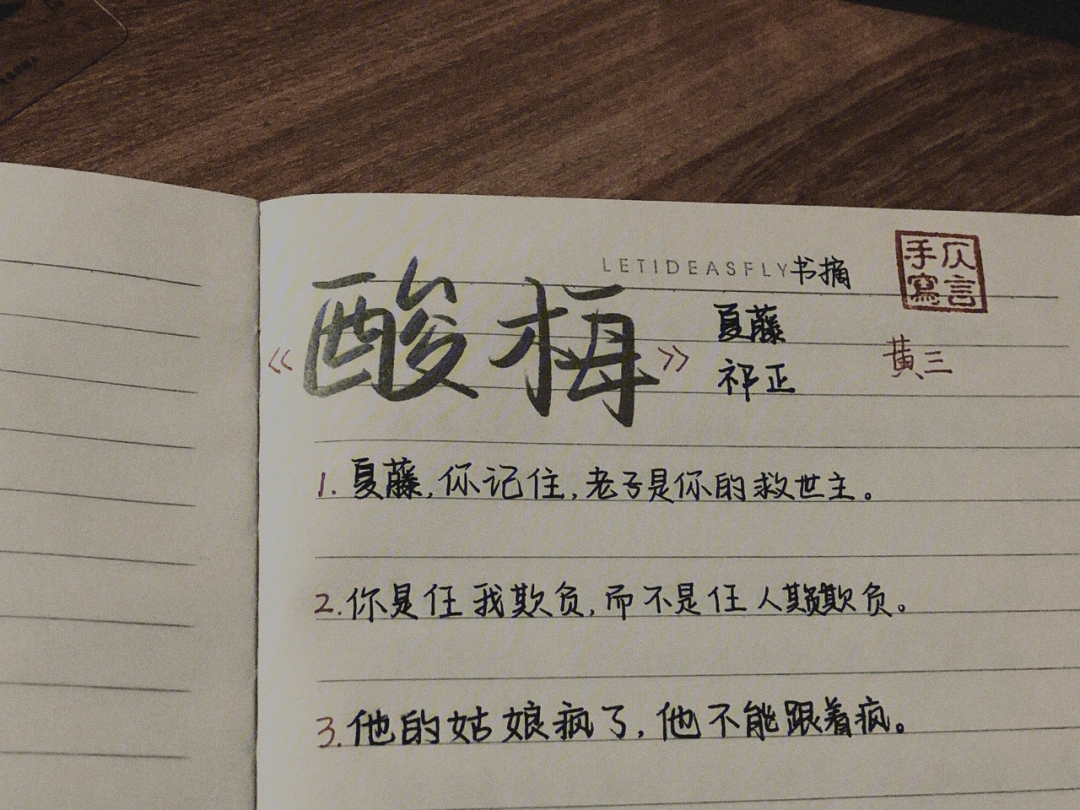 LETIDEASFLY 书摘
手仄
寫言
《酸梅》
夏藤
祁正
黄三
1.夏藤,你记住,老子是你的救世主。
2.你是任我欺负,而不是任人欺负。
3.他的姑娘疯了,他不能跟着疯。